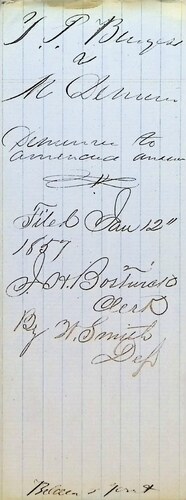 T. P. Burgess
v
M Demin
Demurrer to
amended answer
Filed Jan 12"
1857
J. H. Bostwick
Clerk
By W. Smith
Dep